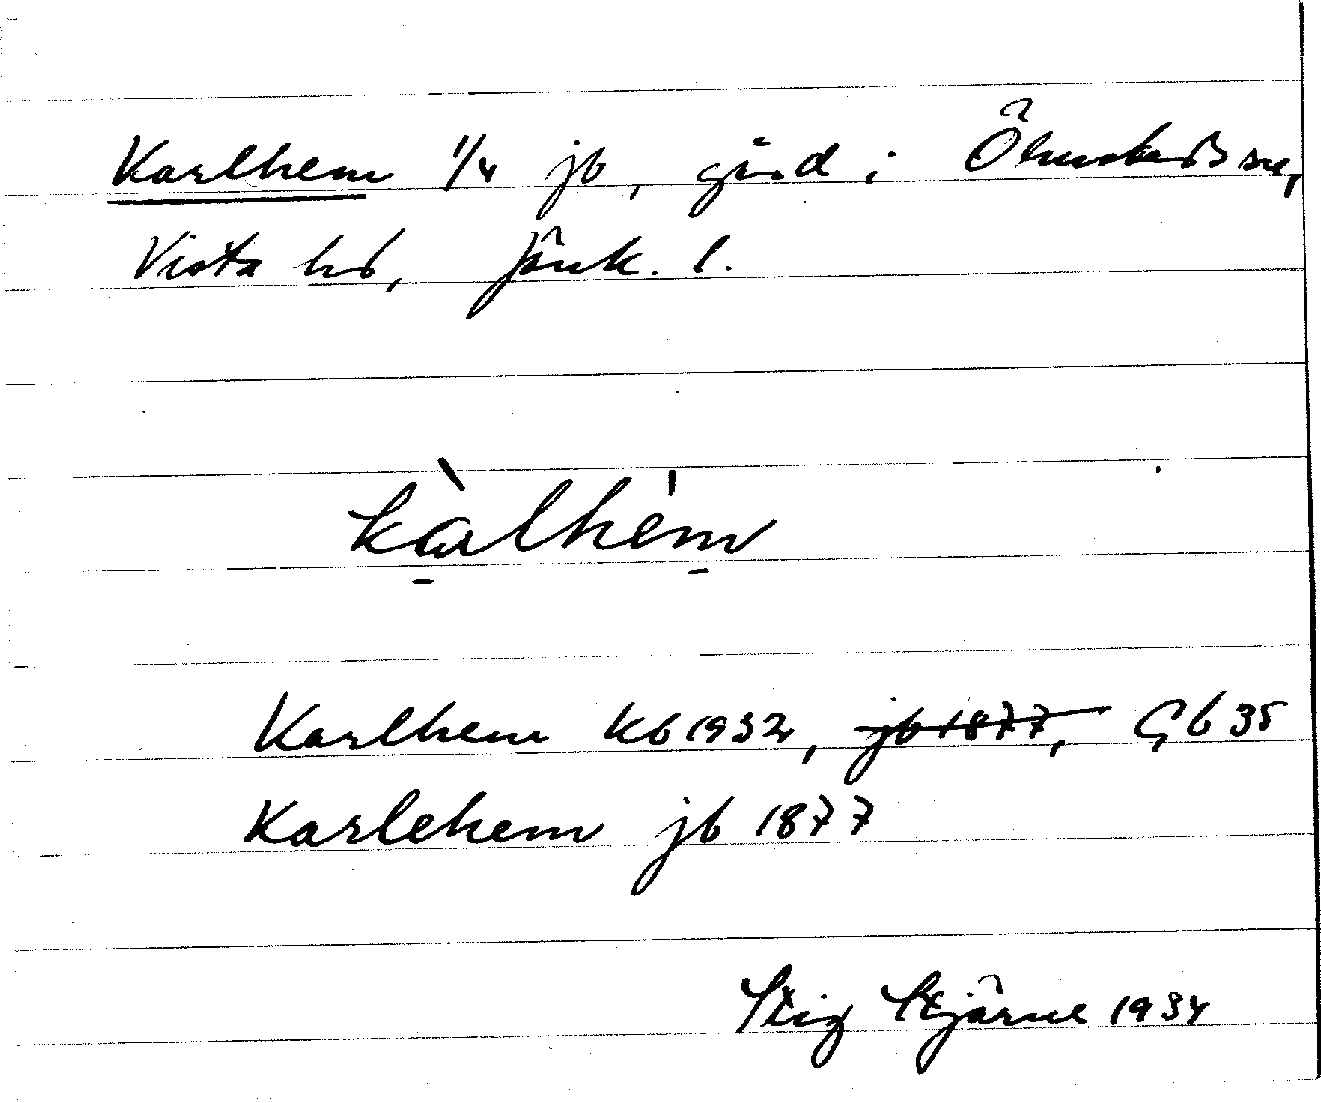 Karlhem 1/4 jb, gård i Ölmstads sn,
Vista hd, Jönk. l.
kàlhém
Karlhem Kb 1932, jb 1877, Gb 35
Karlehem jb 1877
Stig Stjärne 1934